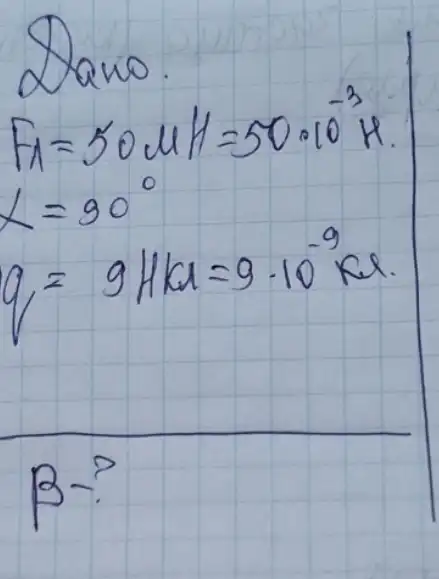 Дано.
Fл = 50 мН = 50 · 10⁻³ Н.
α = 90°
q = 9 Нкл = 9 · 10⁻⁹ кл.
B - ?